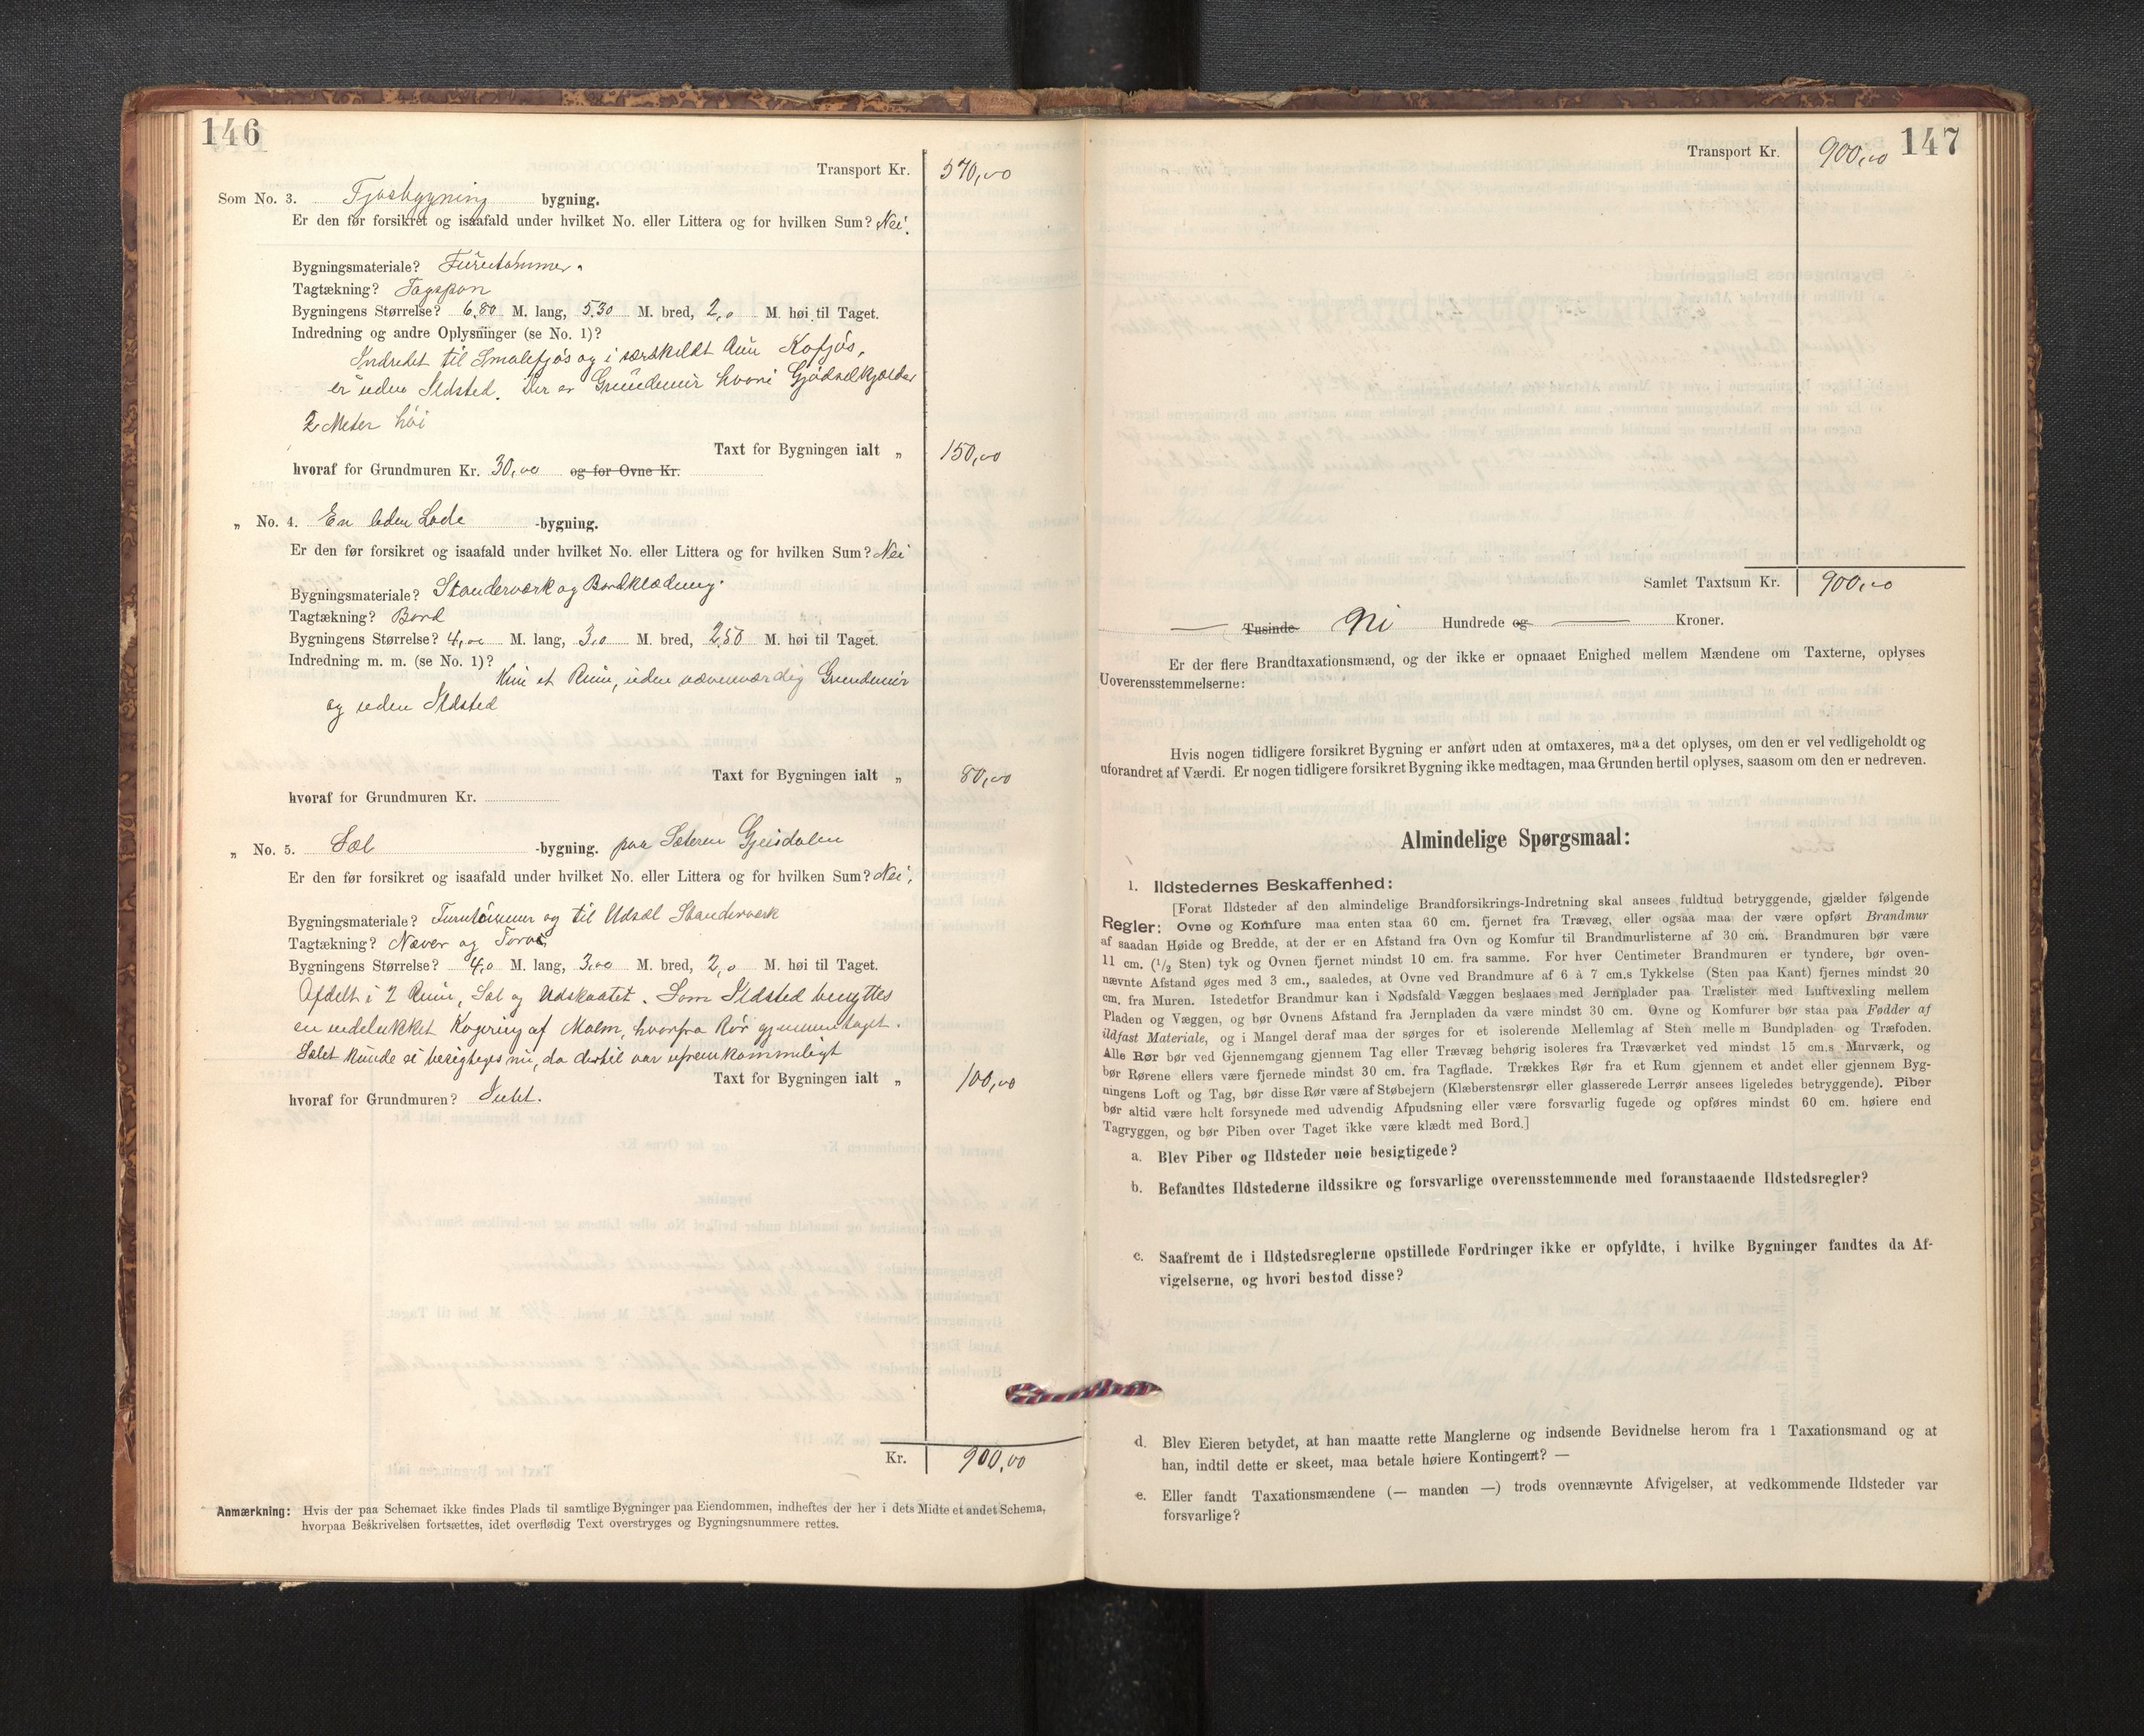 146
Transport Kr. 570,00
Som No. 3. Fjøsbygning bygning.
Er den før forsikret og isaafald under hvilket No. eller Littera og for hvilken Sum? Nei.
Bygningsmateriale? Furutømmer.
Tagtækning? Tagspon
Bygningens Størrelse? 6.80 M. lang, 5.30 M. bred, 2,0 M. høi til Taget.
Indredning og andre Oplysninger (se No. 1)?
Indredet til Smalefjøs og i særskildt Rum Kofjøs,
er uden Ildsted. Der er Grundmur hvori Gjødselkjælder
2 Meter høi
Taxt for Bygningen ialt „ 150,00
hvoraf for Grundmuren Kr. 30,00 og for Ovne Kr.
„ No. 4. En liden Lade -bygning.
Er den før forsikret og isaafald under hvilket No. eller Littera og for hvilken Sum? Nei
Bygningsmateriale? Standerværk og Bordklædning.
Tagtækning? Bord
Bygningens Størrelse? 4,00 M. lang, 3,0 M. bred, 2,50 M. høi til Taget.
Indredning m. m. (se No. 1)?
Kun et Rum, uden nævneværdig Grundmur
og uden Ildsted
Taxt for Bygningen ialt „ 80,00
hvoraf for Grundmuren Kr.
„ No. 5. Sæl -bygning. paa Sæteren Gjeisdalen
Er den før forsikret og isaafald under hvilket No. eller Littera og for hvilken Sum? Nei,
Bygningsmateriale? Furutømmer og til Udsæl Standerværk
Tagtækning? Næver og Torv
Bygningens Størrelse? 4,0 M. lang, 3,00 M. bred, 2,0 M. høi til Taget.
Afdelt i 2 Rum, Sæl og Udskaatet. Som Ildsted benyttes
en indelukket Kogering af Malm, hvorfra Rør gjennem taget.
Sælet kunde ei besigtiges nu, da dertil var ufremkommeligt
Taxt for Bygningen ialt „ 100,00
hvoraf for Grundmuren? Intet.
Kr. 900,00
Anmærkning: Hvis der paa Schemaet ikke findes Plads til samtlige Bygninger paa Eiendommen, indheftes der her i dets Midte et andet Schema,
hvorpaa Beskrivelsen fortsættes, idet overflødig Text overstryges og Bygningsnummere rettes.
147
Transport Kr. 900,00
Samlet Taxtsum Kr. 900,00
— Tusinde Ni Hundrede og — Kroner.
Er der flere Brandtaxationsmænd, og der ikke er opnaaet Enighed mellem Mændene om Taxterne, oplyses
Uoverensstemmelserne:
Hvis nogen tidligere forsikret Bygning er anført uden at omtaxeres, maa det oplyses, om den er vel vedligeholdt og
uforandret af Værdi. Er nogen tidligere forsikret Bygning ikke medtagen, maa Grunden hertil oplyses, saasom om den er nedreven.
Almindelige Spørgsmaal:
1. Ildstedernes Beskaffenhed:
[Forat Ildsteder af den almindelige Brandforsikrings-Indretning skal ansees fuldtud betryggende, gjælder følgende
Regler: Ovne og Komfure maa enten staa 60 cm. fjernet fra Trævæg, eller ogsaa maa der være opført Brandmur
af saadan Høide og Bredde, at der er en Afstand fra Ovn og Komfur til Brandmurlisterne af 30 cm. Brandmuren bør være
11 cm. (½ Sten) tyk og Ovnen fjernet mindst 10 cm. fra samme. For hver Centimeter Brandmuren er tyndere, bør oven-
nævnte Afstand øges med 3 cm., saaledes, at Ovne ved Brandmure af 6 à 7 cm.s Tykkelse (Sten paa Kant) fjernes mindst 20
cm. fra Muren. Istedetfor Brandmur kan i Nødsfald Væggen beslaaes med Jernplader paa Trælister med Luftvexling mellem
Pladen og Væggen, og bør Ovnens Afstand fra Jernpladen da være mindst 30 cm. Ovne og Komfurer bør staa paa Fødder af
ildfast Materiale, og i Mangel deraf maa der sørges for et isolerende Mellemlag af Sten mellem Bundpladen og Træfoden.
Alle Rør bør ved Gjennemgang gjennem Tag eller Trævæg behørig isoleres fra Træværket ved mindst 15 cm.s Murværk, og
bør Rørene ellers være fjernede mindst 30 cm. fra Tagflade. Trækkes Rør fra et Rum gjennem et andet eller gjennem Byg-
ningens Loft og Tag, bør disse Rør være af Støbejern (Klæberstensrør eller glasserede Lerrør ansees ligeledes betryggende). Piber
bør altid være helt forsynede med udvendig Afpudsning eller være forsvarlig fugede og opføres mindst 60 cm. høiere end
Tagryggen, og bør Piben over Taget ikke være klædt med Bord.]
a. Blev Piber og Ildsteder nøie besigtigede?
b. Befandtes Ildstederne ildssikre og forsvarlige overensstemmende med foranstaaende Ildstedsregler?
c. Saafremt de i Ildstedsreglerne opstillede Fordringer ikke er opfyldte, i hvilke Bygninger fandtes da Af-
vigelserne, og hvori bestod disse?
d. Blev Eieren betydet, at han maatte rette Manglerne og indsende Bevidnelse herom fra 1 Taxationsmand og at
han, indtil dette er skeet, maa betale høiere Kontingent? —
e. Eller fandt Taxationsmændene (— manden —) trods ovennævnte Afvigelser, at vedkommende Ildsteder var
forsvarlige?